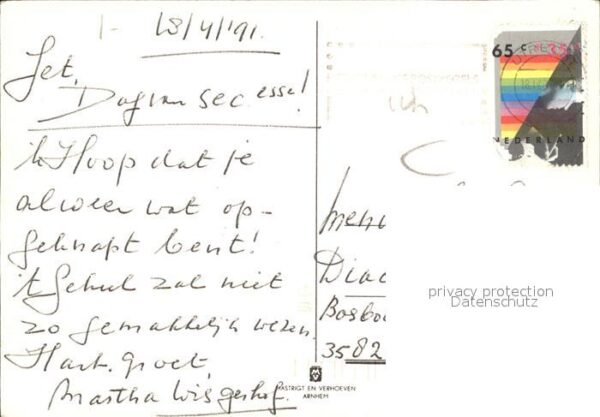 18/4/'91.
Jet,
Dag van sec esse!
ik Hoop dat je
alweer wat op-
geknapt bent!
't Gehul zal niet
zo gemakkelijk wezen.
Hart. groet,
Martha Wisgerhof.
65 c
NEDERLAND
Diac
Bosbo
3582
privacy protection
Datenschutz
RASTRIGT EN VERHOEVEN
ARNHEM